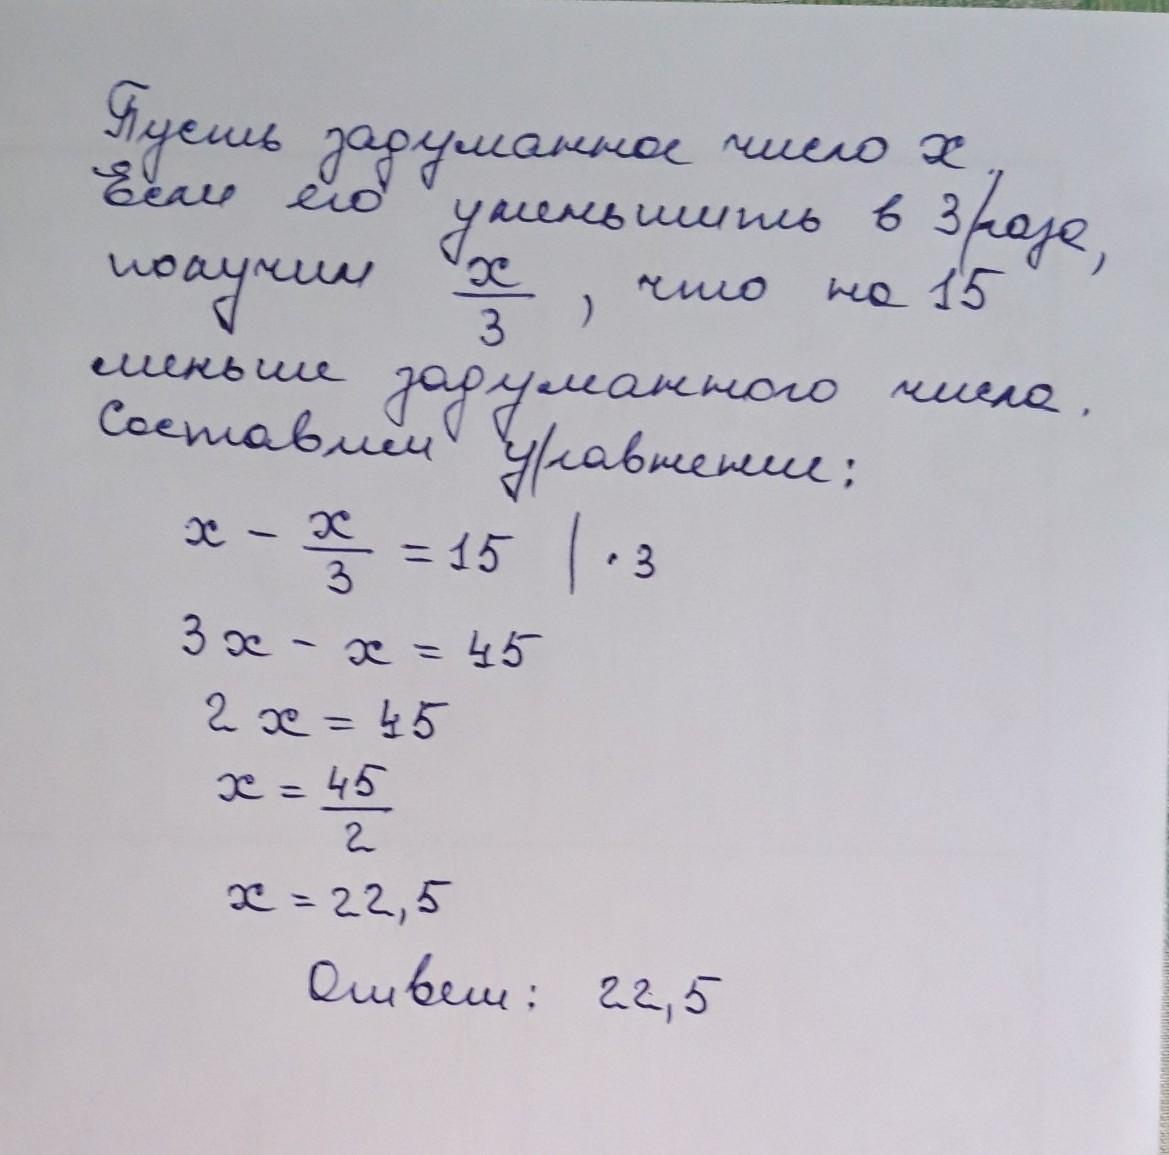 Пусть задуманное число x.
Если его уменьшить в 3 раза,
получим x/3, что на 15
меньше задуманного числа.
Составим уравнение:
x - x/3 = 15 | · 3
3x - x = 45
2x = 45
x = 45/2
x = 22,5
Ответ: 22,5